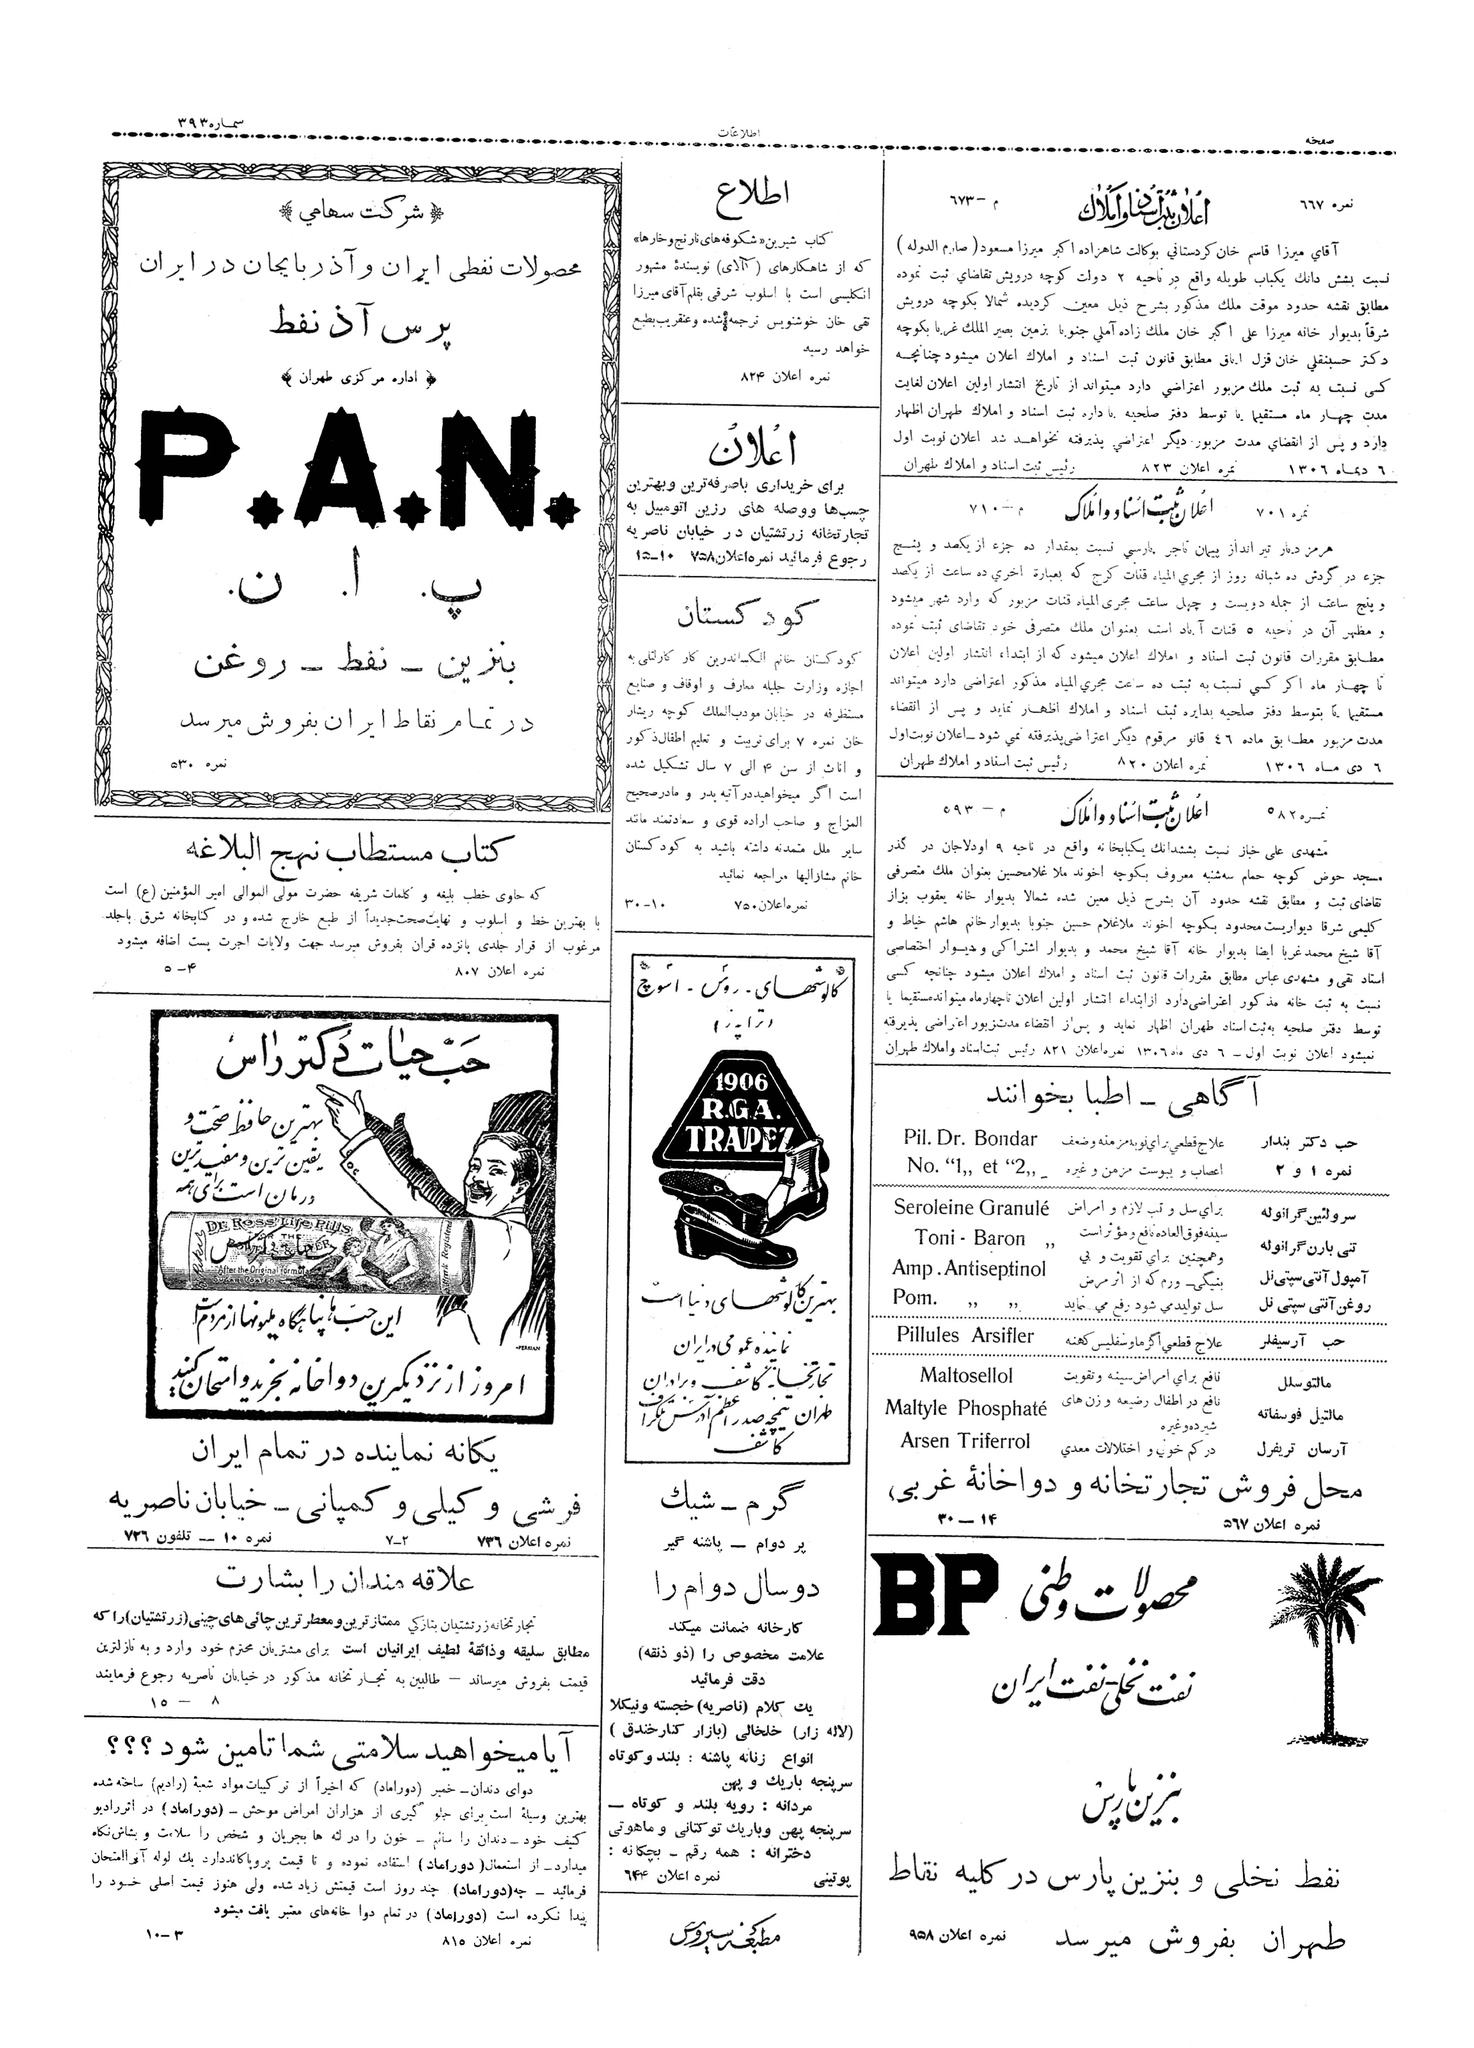 صفحه
اطلاعات
شماره ۳۹۳
نمره ۶۶۷
اعلان ثبت اسناد و املاک
م — ۶۷۳
آقای میرزا قاسم خان کردستانی بوکالت شاهزاده اکبر میرزا مسعود (صارم الدوله)
نسبت بشش دانك یکباب طویله واقع در ناحیه ۲ دولت کوچه درویش تقاضای ثبت نموده
مطابق نقشه حدود موقت ملك مذکور بشرح ذیل معین گردیده شمالا بکوچه درویش
شرقاً بدیوار خانه میرزا علی اکبر خان ملك زاده آملی جنوبا بزمین بصیر الملك غربا بکوچه
دکتر حسینقلی خان قزل ایاق مطابق قانون ثبت اسناد و املاك اعلان میشود چنانچه
کسی نسبت به ثبت ملك مزبور اعتراضی دارد میتواند از تاریخ انتشار اولین اعلان لغایت
مدت چهار ماه مستقیما یا توسط دفتر صلحیه باداره ثبت اسناد و املاك طهران اظهار
دارد و پس از انقضای مدت مزبور دیگر اعتراضی پذیرفته نخواهد شد اعلان نوبت اول
۶ دیماه ۱۳۰۶ نمره اعلان ۸۲۳ رئیس ثبت اسناد و املاك طهران
نمره ۷۰۱
اعلان ثبت اسناد و املاک
م — ۷۱۰
هرمز دیار تیر انداز پیمان تاجر پارسی نسبت بمقدار ده جزء از یکصد و پنج
جزء در گردش ده شبانه روز از مجری المیاه قنات کرج که بعبارة اخری ده ساعت از یکصد
و پنج ساعت از جمله دویست و چهل ساعت مجری المیاه قنات مزبور که وارد شهر میشود
و مظهر آن در ناحیه ۵ قنات آباد است بعنوان ملك متصرفی خود تقاضای ثبت نموده
مطابق مقررات قانون ثبت اسناد و املاك اعلان میشود که از ابتداء انتشار اولین اعلان
تا چهار ماه اکر کسی نسبت به ثبت ده ساعت مجری المیاه مذکور اعتراضی دارد میتواند
مستقیما یا بتوسط دفتر صلحیه بدایره ثبت اسناد و املاك اظهار نماید و پس از انقضاء
مدت مزبور مطابق ماده ٤٦ قانو مرقوم دیگر اعتراضی پذیرفته نمی شود – اعلان نوبت اول
۶ دی ماه ۱۳۰۶ نمره اعلان ۸۲۰ رئیس ثبت اسناد و املاك طهران
نمره ۵۸۲
اعلان ثبت اسناد و املاک
م — ۵۹۳
مشهدی علی خباز نسبت بششدانك یکبابخانه واقع در ناحیه ۹ اودلاجان در گذر
مسجد حوض کوچه حمام سه‌شنبه معروف بکوچه اخوند ملا غلامحسین بعنوان ملك متصرفی
تقاضای ثبت و مطابق نقشه حدود آن بشرح ذیل معین شده شمالا بدیوار خانه یعقوب بزاز
کلیمی شرقا دیواریست محدود بکوچه اخوند ملاغلام حسین جنوبا بدیوار خانم هاشم خیاط و
آقا شیخ محمد غربا ایضا بدیوار خانه آقا شیخ محمد و بدیوار اشتراکی و دیوار اختصاصی
استاد تقی و مشهدی عباس مطابق مقررات قانون ثبت اسناد و املاك اعلان میشود چنانچه کسی
نسبت به ثبت خانه مذکور اعتراضی دارد از ابتداء انتشار اولین اعلان تاچهارماه میتواند مستقیما یا
توسط دفتر صلحیه به ثبت اسناد طهران اظهار نماید و پس از انقضاء مدت مزبور اعتراضی پذیرفته
نمیشود اعلان نوبت اول – ۶ دی ماه ۱۳۰۶ نمره اعلان ۸۲۱ رئیس ثبت اسناد و املاك طهران
آگاهی – اطبا بخوانند
حب دکتر بندار علاج قطعی برای نوبه مزمنه و ضعف Pil. Dr. Bondar
نمره ۱ و ۲ اعصاب و یبوست مزمن و غیره No. “1„ et “2„
سرولئین گرانوله برای سل و تب لازم و امراض Seroleine Granulé
تنی بارن گرانوله سینه فوق العاده نافع و مؤثر است Toni - Baron „
آمپول آنتی سپتی نل وهمچنین برای تقویت و بی Amp. Antiseptinol
بنیگی – ورم که از اثر مرض
روغن آنتی سپتی نل سل تولید می شود رفع می نماید Pom. „ „
حب آرسیفلر علاج قطعی اگزما و سفلیس کهنه Pillules Arsifler
مالتوسلل نافع برای امراض سینه و تقویت Maltosellol
مالتیل فوسفاته نافع در اطفال رضیعه و زن های Maltyle Phosphaté
شیرده و غیره
آرسان تریفرل در کم خونی و اختلالات معدی Arsen Triferrol
محل فروش تجارتخانه و دواخانهٔ غربی
نمره اعلان ۵۶۷ ۱۴ — ۳۰
BP
محصولات وطنی
نفت نخلی - نفت ایران
بنزین پارس
نفط نخلی و بنزین پارس در کلیه نقاط
طهران بفروش میرسد نمره اعلان ۹۵۸
اطلاع
کتاب شیرین «شکوفه‌های نارنج و خارها»
که از شاهکارهای (کالای) نویسندهٔ مشهور
انکلیسی است با اسلوب شرقی بقلم آقای میرزا
تقی خان خوشنویس ترجمه شده و عنقریب بطبع
خواهد رسید
نمره اعلان ۸۲۴
اعلان
برای خریداری باصرفه‌ترین و بهترین
چسب‌ها و وصله های رزین اتومبیل به
تجارتخانه زرتشتیان در خیابان ناصریه
رجوع فرمائید نمره اعلان ۷۵۸ ۱۰–۱۵
کودکستان
کودکستان خانم الکساندرین کار کارلنلی به
اجازه وزارت جلیله معارف و اوقاف و صنایع
مستظرفه در خیابان مودب الملك کوچه ریشار
خان نمره ۷ برای تربیت و تعلیم اطفال ذکور
و اناث از سن ۴ الی ۷ سال تشکیل شده
است اگر میخواهید در آتیه پدر و مادر صحیح
المزاج و صاحب اراده قوی و سعادتمند مانند
سایر ملل متمدنه داشته باشید به کودکستان
خانم مشارالیها مراجعه نمائید
نمره اعلان ۷۵۰ ۱۰–۳۰
گالوشهای - روس - اسوج
تراپز
1906
R.G.A.
TRAPEZ
بهترین گالوشهای دنیا است
نماینده عمومی در ایران
تجارتخانه کاشف و برادران
طهران تیمچه صدر اعظم آدرس تلگرافی
کاشف
گرم – شیك
پر دوام – پاشنه گیر
دو سال دوام را
کارخانه ضمانت میکند
علامت مخصوص را (ذو ذنقه)
دقت فرمائید
یك کلام (ناصریه) خجسته و نیکلا
(لاله زار) خلخالی (بازار کنار خندق)
انواع زنانه پاشنه : بلند و کوتاه
سرپنجه باریك و پهن
مردانه : رویه بلند و کوتاه —
سرپنجه پهن و باریك توکتانی و ماهوتی
دخترانه : همه رقم – بچکانه :
پوتینی نمره اعلان ۶۴۴
مطبعه سیروس
شرکت سهامی
محصولات نفطی ایران و آذربایجان در ایران
پرس آذ نفط
اداره مرکزی طهران
P.A.N.
پ. ا. ن.
بنزین – نفط – روغن
در تمام نقاط ایران بفروش میرسد
نمره ۵۳۰
کتاب مستطاب نهج البلاغه
که حاوی خطب بلیغه و کلمات شریفه حضرت مولی الموالی امیر المؤمنین (ع) است
با بهترین خط و اسلوب و نهایت صحت جدیداً از طبع خارج شده و در کتابخانه شرق باجلد
مرغوب از قرار جلدی پانزده قران بفروش میرسد جهت ولایات اجرت پست اضافه میشود
نمره اعلان ۸۰۷ ۴–۵
حب حیات دکتر راس
بهترین حافظ صحت و
یقین ترین و مفید ترین
درمان است برای همه
Dr. Ross' Life Pills
FOR THE
After the Original formula
حیات دکتر راس
Registered
PERSIAN
این حب ها پناهگاه ملیونها از مردم است
امروز از نزدیکترین دواخانه بخرید و امتحان کنید
یکانه نماینده در تمام ایران
فرشی و کیلی و کمپانی – خیابان ناصریه
نمره اعلان ۷۳۶ ۲–۷ نمره ۱۰ — تلفون ۷۲۶
علاقه مندان را بشارت
تجارتخانه زرتشتیان بتازکی ممتازترین و معطرترین چائی‌های چینی (زرتشتیان) را که
مطابق سلیقه و ذائقهٔ لطیف ایرانیان است برای مشتریان محترم خود وارد و به نازلترین
قیمت بفروش میرساند — طالبین به تجارتخانه مذکور در خیابان ناصریه رجوع فرمایند
۸ — ۱۵
آیا میخواهید سلامتی شما تامین شود ؟؟؟
دوای دندان – خمیر (دوراماد) که اخیراً از ترکیبات مواد شعبهٔ (رادیم) ساخته شده
بهترین وسیلهٔ است برای جلو گیری از هزاران امراض موحش – (دوراماد) در اثر رادیو
کتیف خود – دندان را سالم – خون را در لثه ها بجریان و شخص را سلامت و بشاش نگاه
میدارد – از استعمال (دوراماد) استفاده نموده و تا قیمت پروپاکاند دارد یك لوله آنرا امتحان
فرمائید – چه (دوراماد) چند روز است قیمتش زیاد شده ولی هنوز قیمت اصلی خود را
پیدا نکرده است (دوراماد) در تمام دوا خانه‌های معتبر یافت میشود
نمره اعلان ۸۱۵ ۳–۱۰